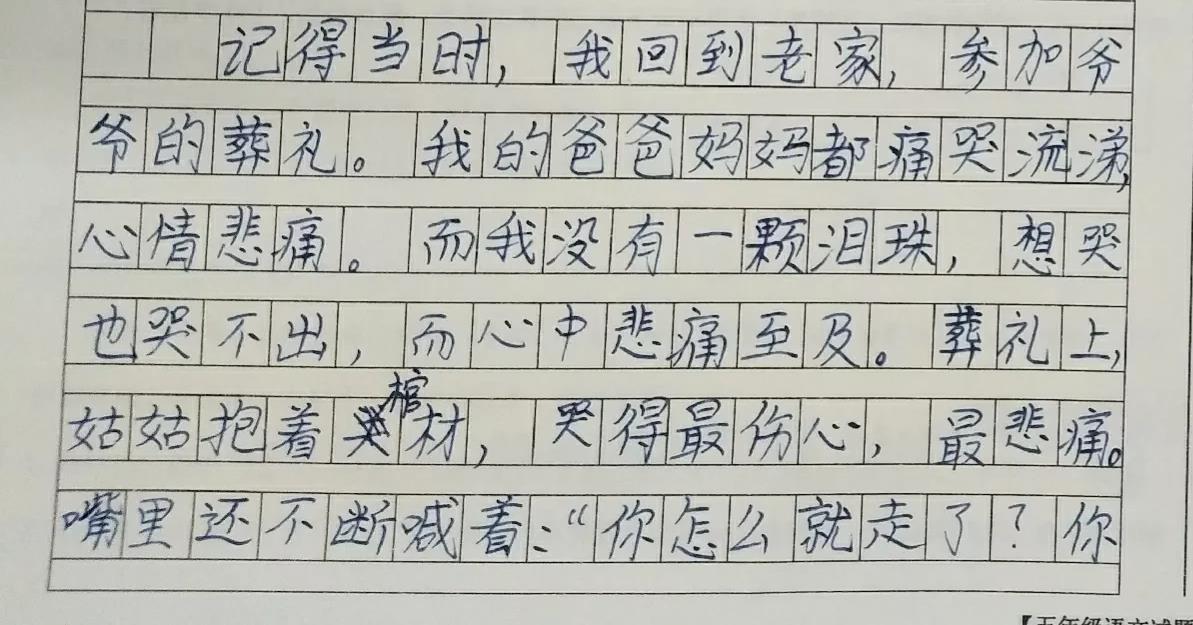 记得当时，我回到老家，参加爷
爷的葬礼。我的爸爸妈妈都痛哭流涕，
心情悲痛。而我没有一颗泪珠，想哭
也哭不出，而心中悲痛至及。葬礼上，
姑姑抱着棺材，哭得最伤心，最悲痛。
嘴里还不断喊着：“你怎么就走了？你
【五年级语文试题